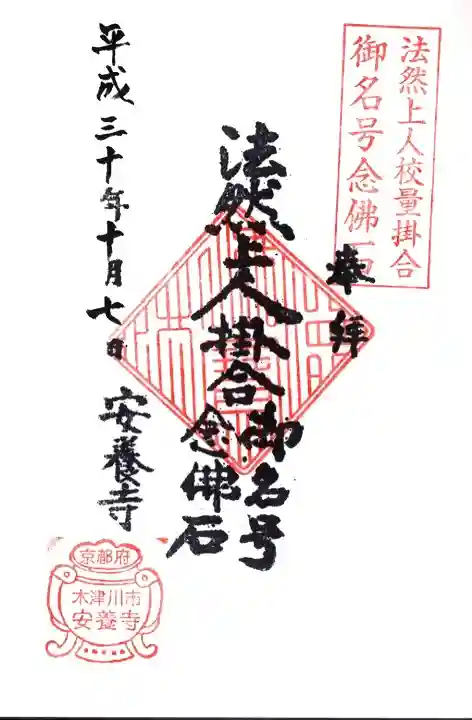 法然上人校量掛合
御名号念佛石
奉拝
法然上人掛合御名号
念佛石
平成三十年十月七日 安養寺
京都府
木津川市
安養寺